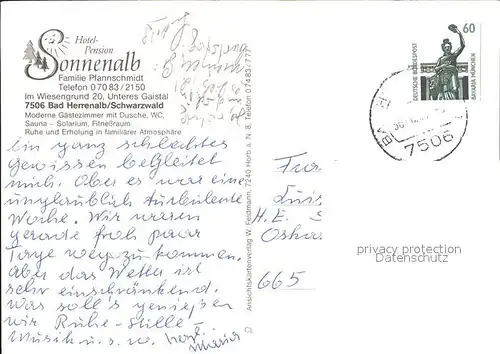 Hotel-
Pension
Sonnenalb
Familie Pfannschmidt
Telefon 0 70 83 / 21 50
Im Wiesengrund 20, Unteres Gaistal
7506 Bad Herrenalb/Schwarzwald
Moderne Gästezimmer mit Dusche, WC,
Sauna – Solarium, Fitneßraum.
Ruhe und Erholung in familiärer Atmosphäre
Ein ganz schlechtes
Gewissen begleitet
mich. Aber es war eine
unglaublich turbulente
Woche. Wir waren
gerade froh paar
Tage wegzukommen.
Aber das Wetter ist
sehr einschränkend.
Was soll's genießen
wir Ruhe – Stille –
Musik u. s. w. herzl.
Maria
Ansichtskartenverlag W. Feldmann, 7240 Horb a. N. 8, Telefon 0 74 83 / 7 77
60
DEUTSCHE BUNDESPOST
BAVARIA MÜNCHEN
7506
Luis
H. E. S
665
privacy protection
Datenschutz